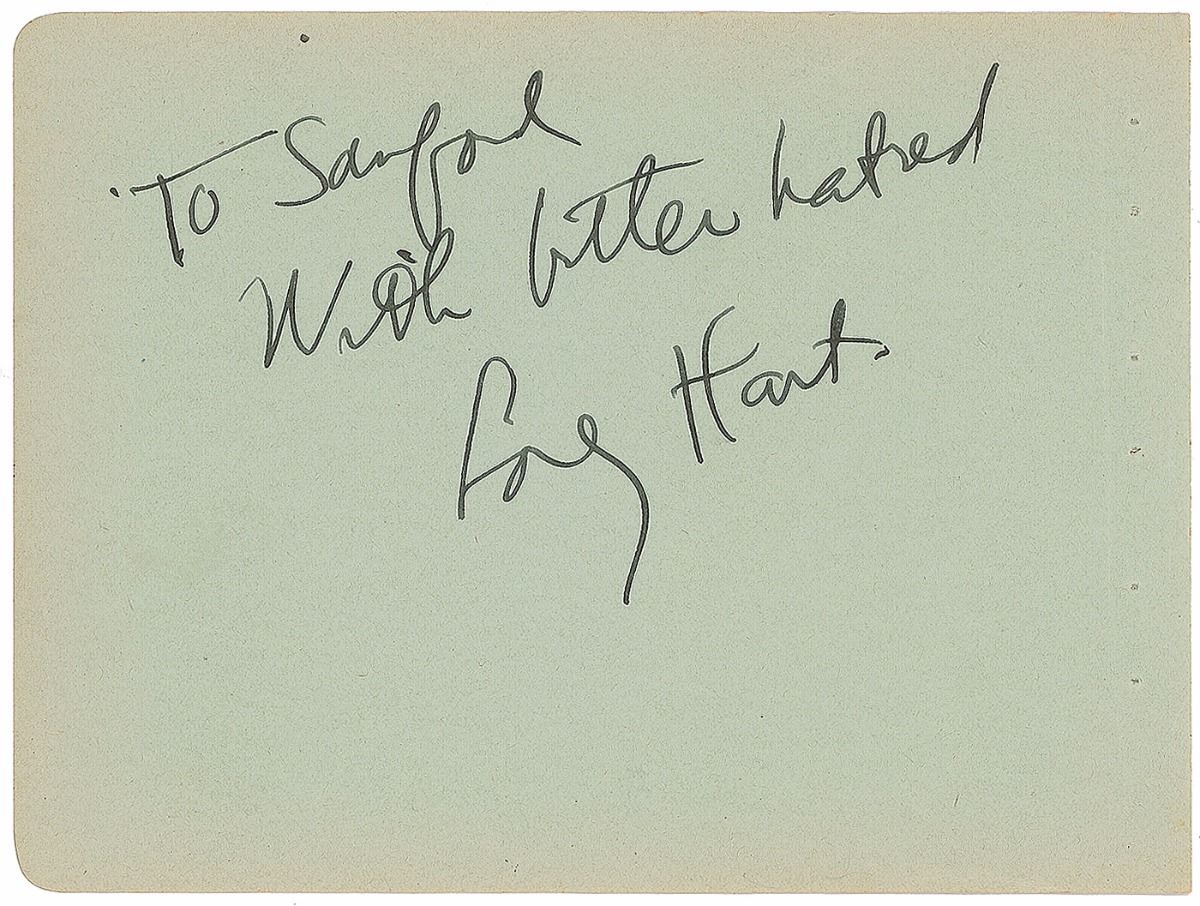 To Sanford
With bitter hatred
Lory Hart.